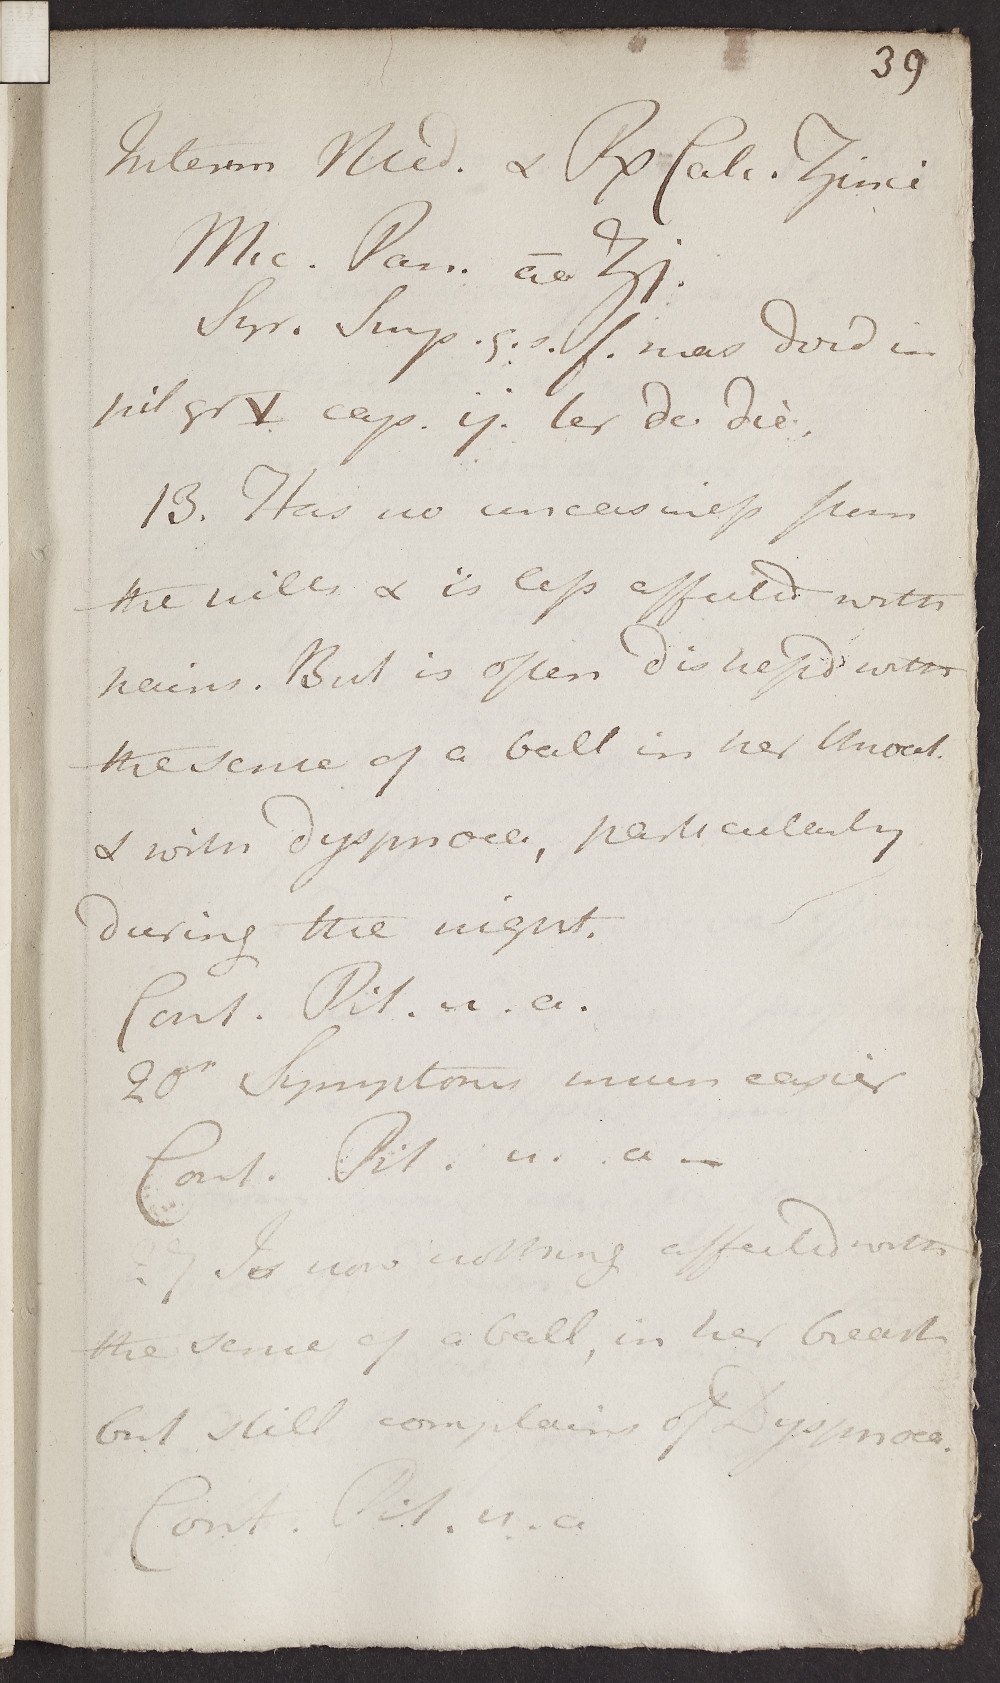 39
Interm Med. & Rx Calc. Zinci
Mic. Pan. āā ʒj.
Syr. Simp. q.s. f. mas divid in
pil gr V cap. ij. ter de die.
13. Has no uneasiness from
the pills & is less affected with
pains. But is often distressd with
the sense of a ball in her throat.
& with Dyspnoea, particularly
during the night.
Cont. Pil. u. a.
20" Symptoms much easier
Cont. Pil. u. a —
27 Is now nothing affected with
the sense of a ball, in her breast
but still complains of Dyspnoea.
Cont. Pil. u. a